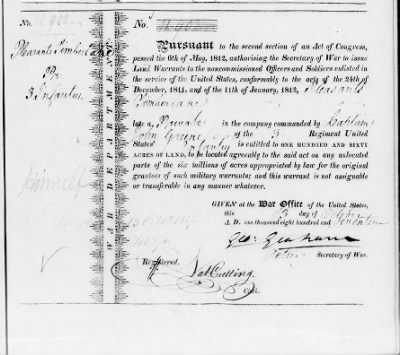 No.
No.
Pursuant to the second section of an Act of Congress,
passed the 6th of May, 1812, authorising the Secretary of War to issue
Land Warrants to the noncommissioned Officers and Soldiers enlisted in
the service of the United States, conformably to the acts of the 24th of
December, 1811, and of the 11th of January, 1812, Pleasants
Timberlane
late a Private in the company commanded by Captain
John Greene of the 3 Regiment United
States' Infantry is entitled to ONE HUNDRED AND SIXTY
ACRES OF LAND, to be located agreeably to the said act on any unlocated
parts of the six millions of acres appropriated by law for the original
grantees of such military warrants; and this warrant is not assignable
or transferable in any manner whatever.
GIVEN at the War Office of the United States,
this 3 day of
A. D. one thousand eight hundred and Seventeen
Geo: Graham
Secretary of War.
Registered.
Nat Cutting.
Pleasants Timberlane
3 Infantry
himself
WAR DEPARTMENT